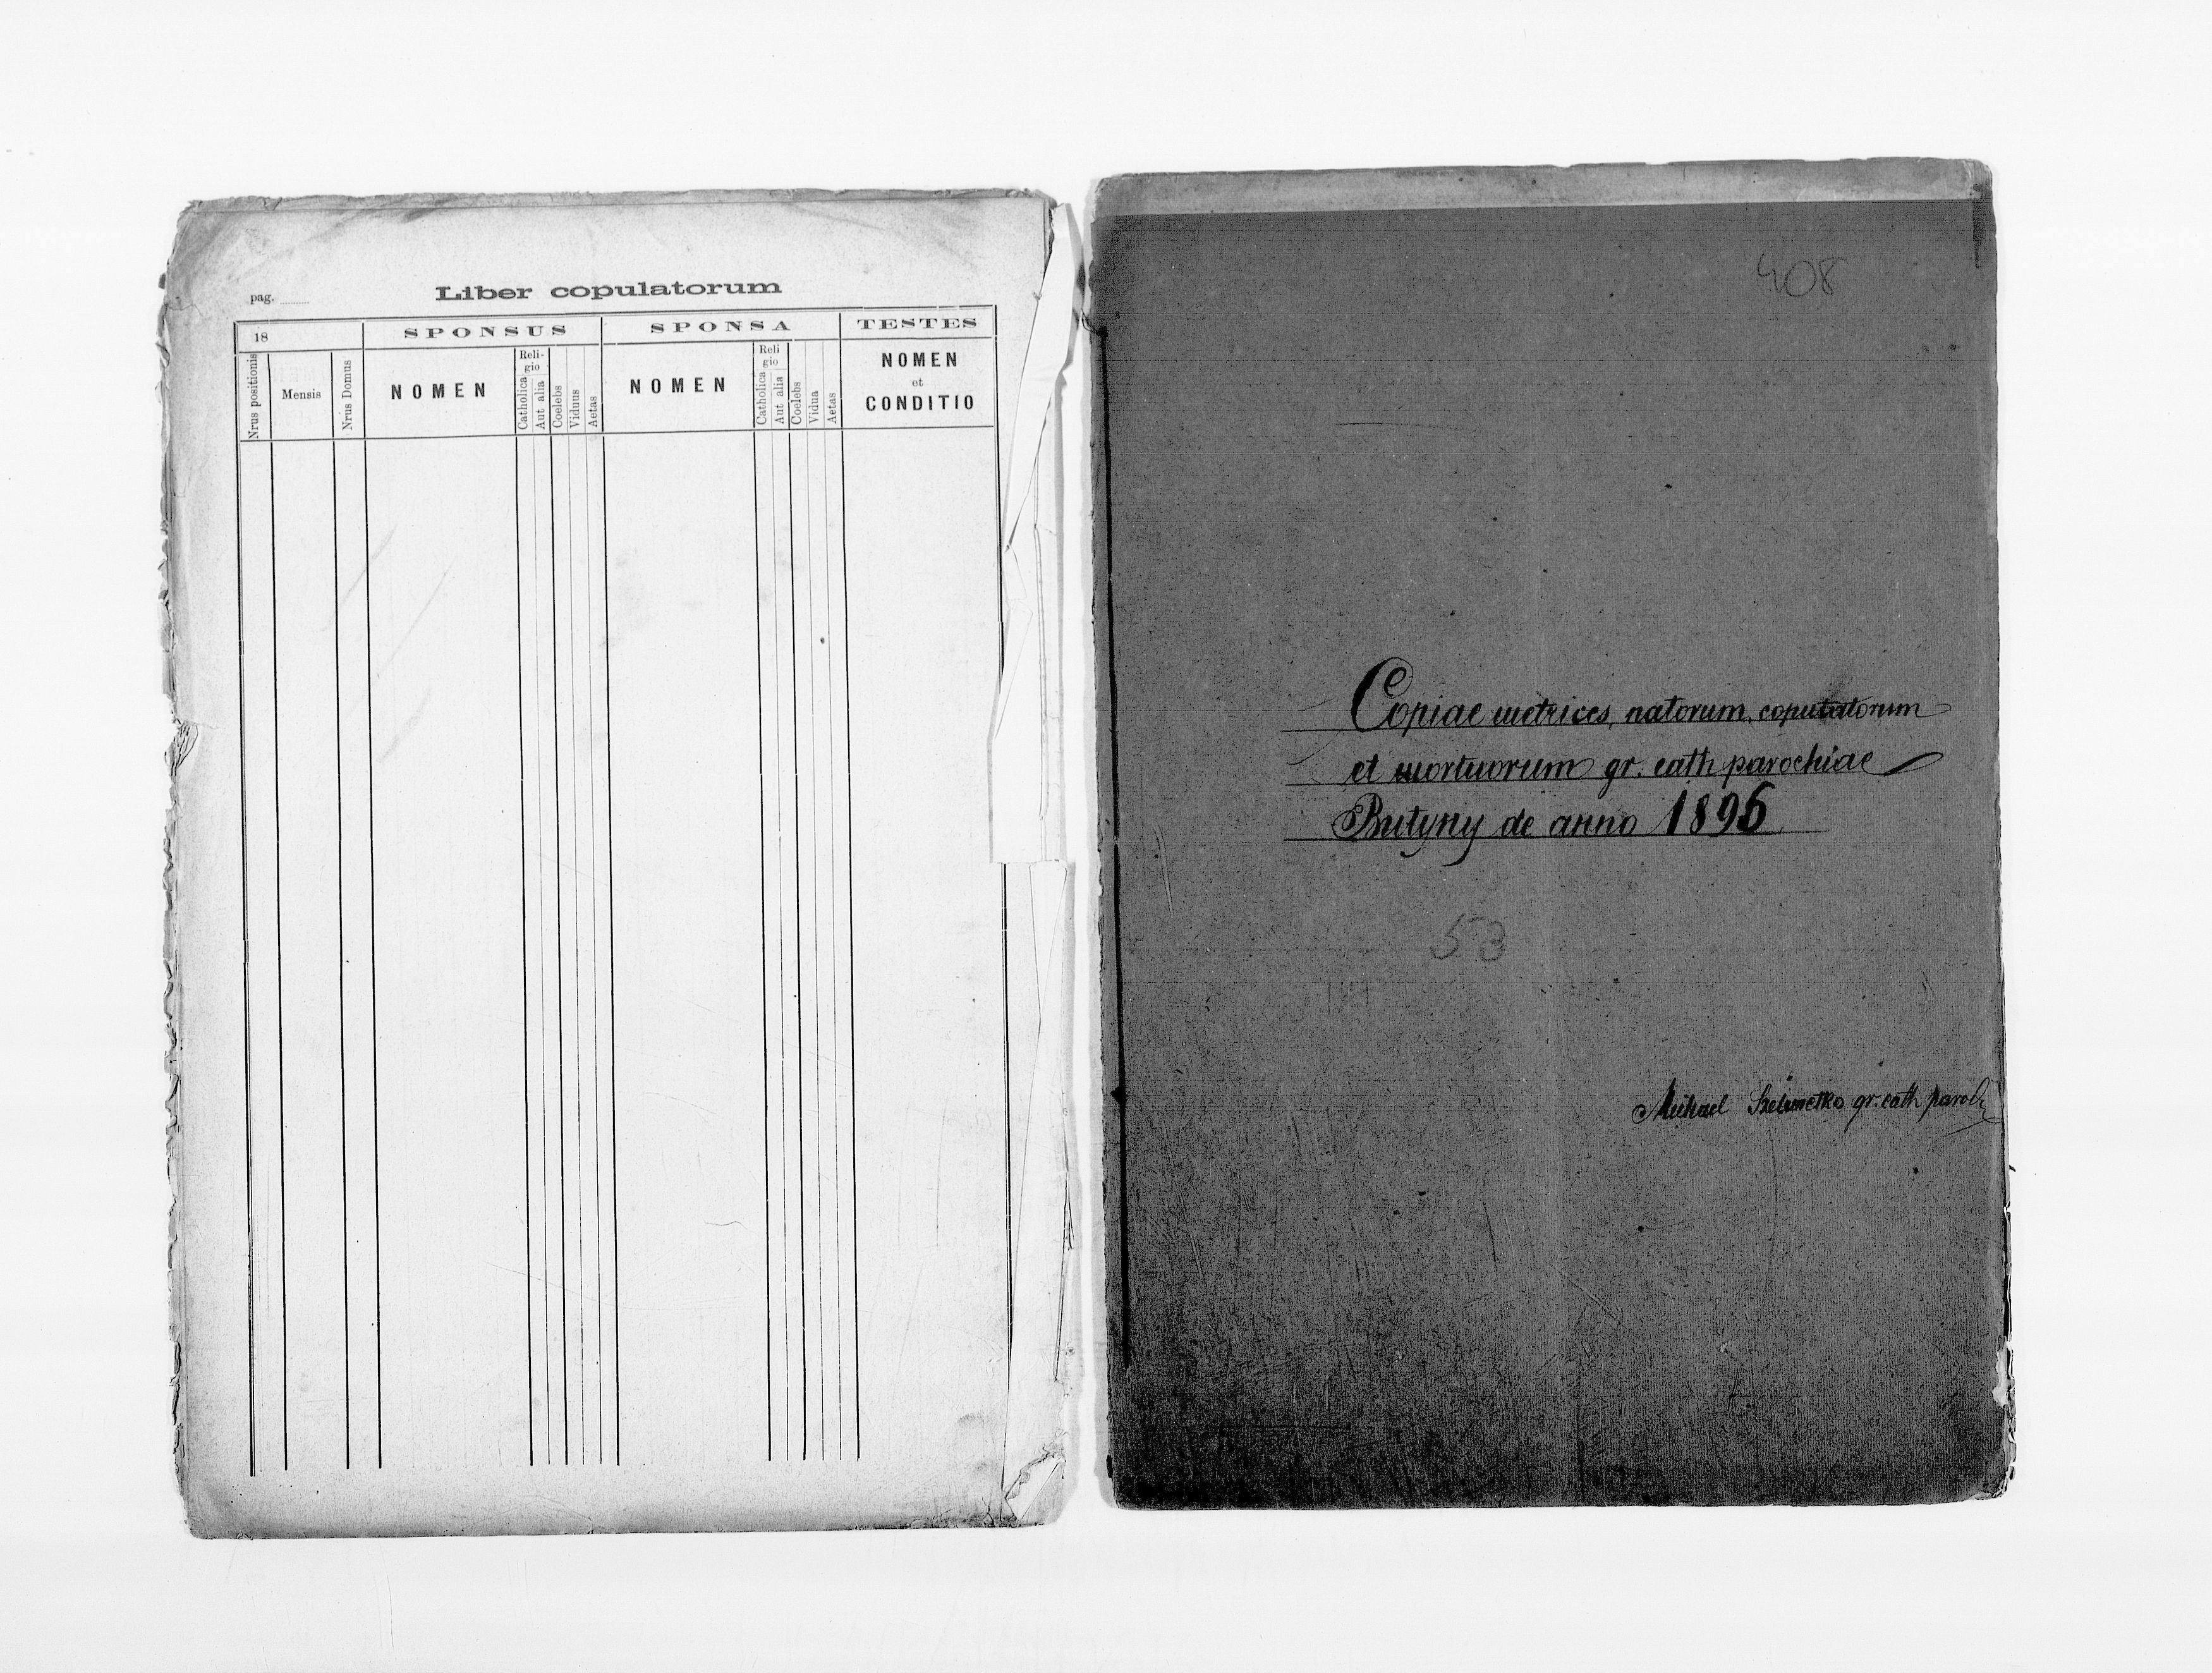 pag.
Liber copulatorum
18
SPONSUS
SPONSA
TESTES
Nrus positionis
Mensis
Nrus Domus
NOMEN
Reli-
gio
Catholica
Aut alia
Coelebs
Viduus
Aetas
NOMEN
Reli
gio
Catholica
Aut alia
Coelebs
Vidua
Aetas
NOMEN
et
CONDITIO
408
Copiae metrices, natorum, copulatorum
et mortuorum gr. cath parochiae
Butyny de anno 1896
53
Michael gr. cath paroch